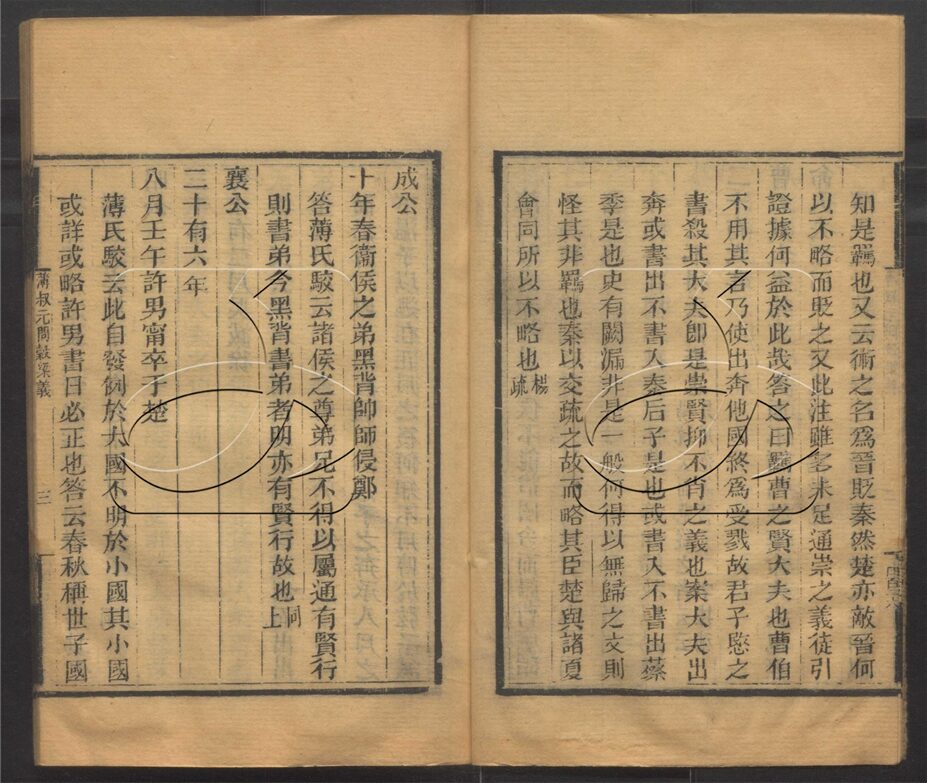 知是羈也又云術之名爲晉貶秦然楚亦敵晉何
以不略而貶之又此注雖多未足通崇之義徒引
證據何益於此哉答之曰羈曹之賢大夫也曹伯
不用其言乃使出奔他國終爲受戮故君子愍之
書殺其大夫卽是崇賢抑不肖之義也案大夫出
奔或書出不書入秦后子是也或書入不書出蔡
季是也史有闕漏非是一般何得以無歸之文則
怪其非羈也秦以交疏之故而略其臣楚與諸夏
會同所以不略也楊疏
成公
十年春衞侯之弟黑背帥師侵鄭
答薄氏駮云諸侯之尊弟兄不得以屬通有賢行
則書弟今黑背書弟者明亦有賢行故也同上
襄公
二十有六年
八月壬午許男甯卒于楚
薄氏駮云此自發例於大國不明於小國其小國
或詳或略許男書日必正也答云春秋稱世子國
薄叔元問穀梁義
三